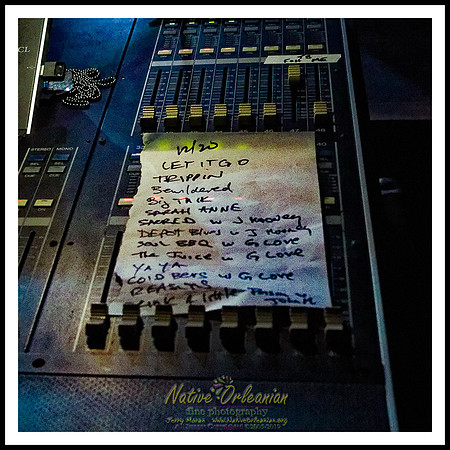 CL
STEREO MONO
CUE CUE
48
12/20
LET IT GO
TRIPPIN
Bewildered
Big TALK
SARAH ANNE
SACRED w J MOONEY
DEPOT Blues w J MOONEY
Soul BBQ w G LOVE
The Juice w G LOVE
YA YA
COLD BEER w G LOVE
REASONS
LINK A Little
John H
Native Orleanian
fine photography
Jerry Moran - www.NativeOrleanian.org